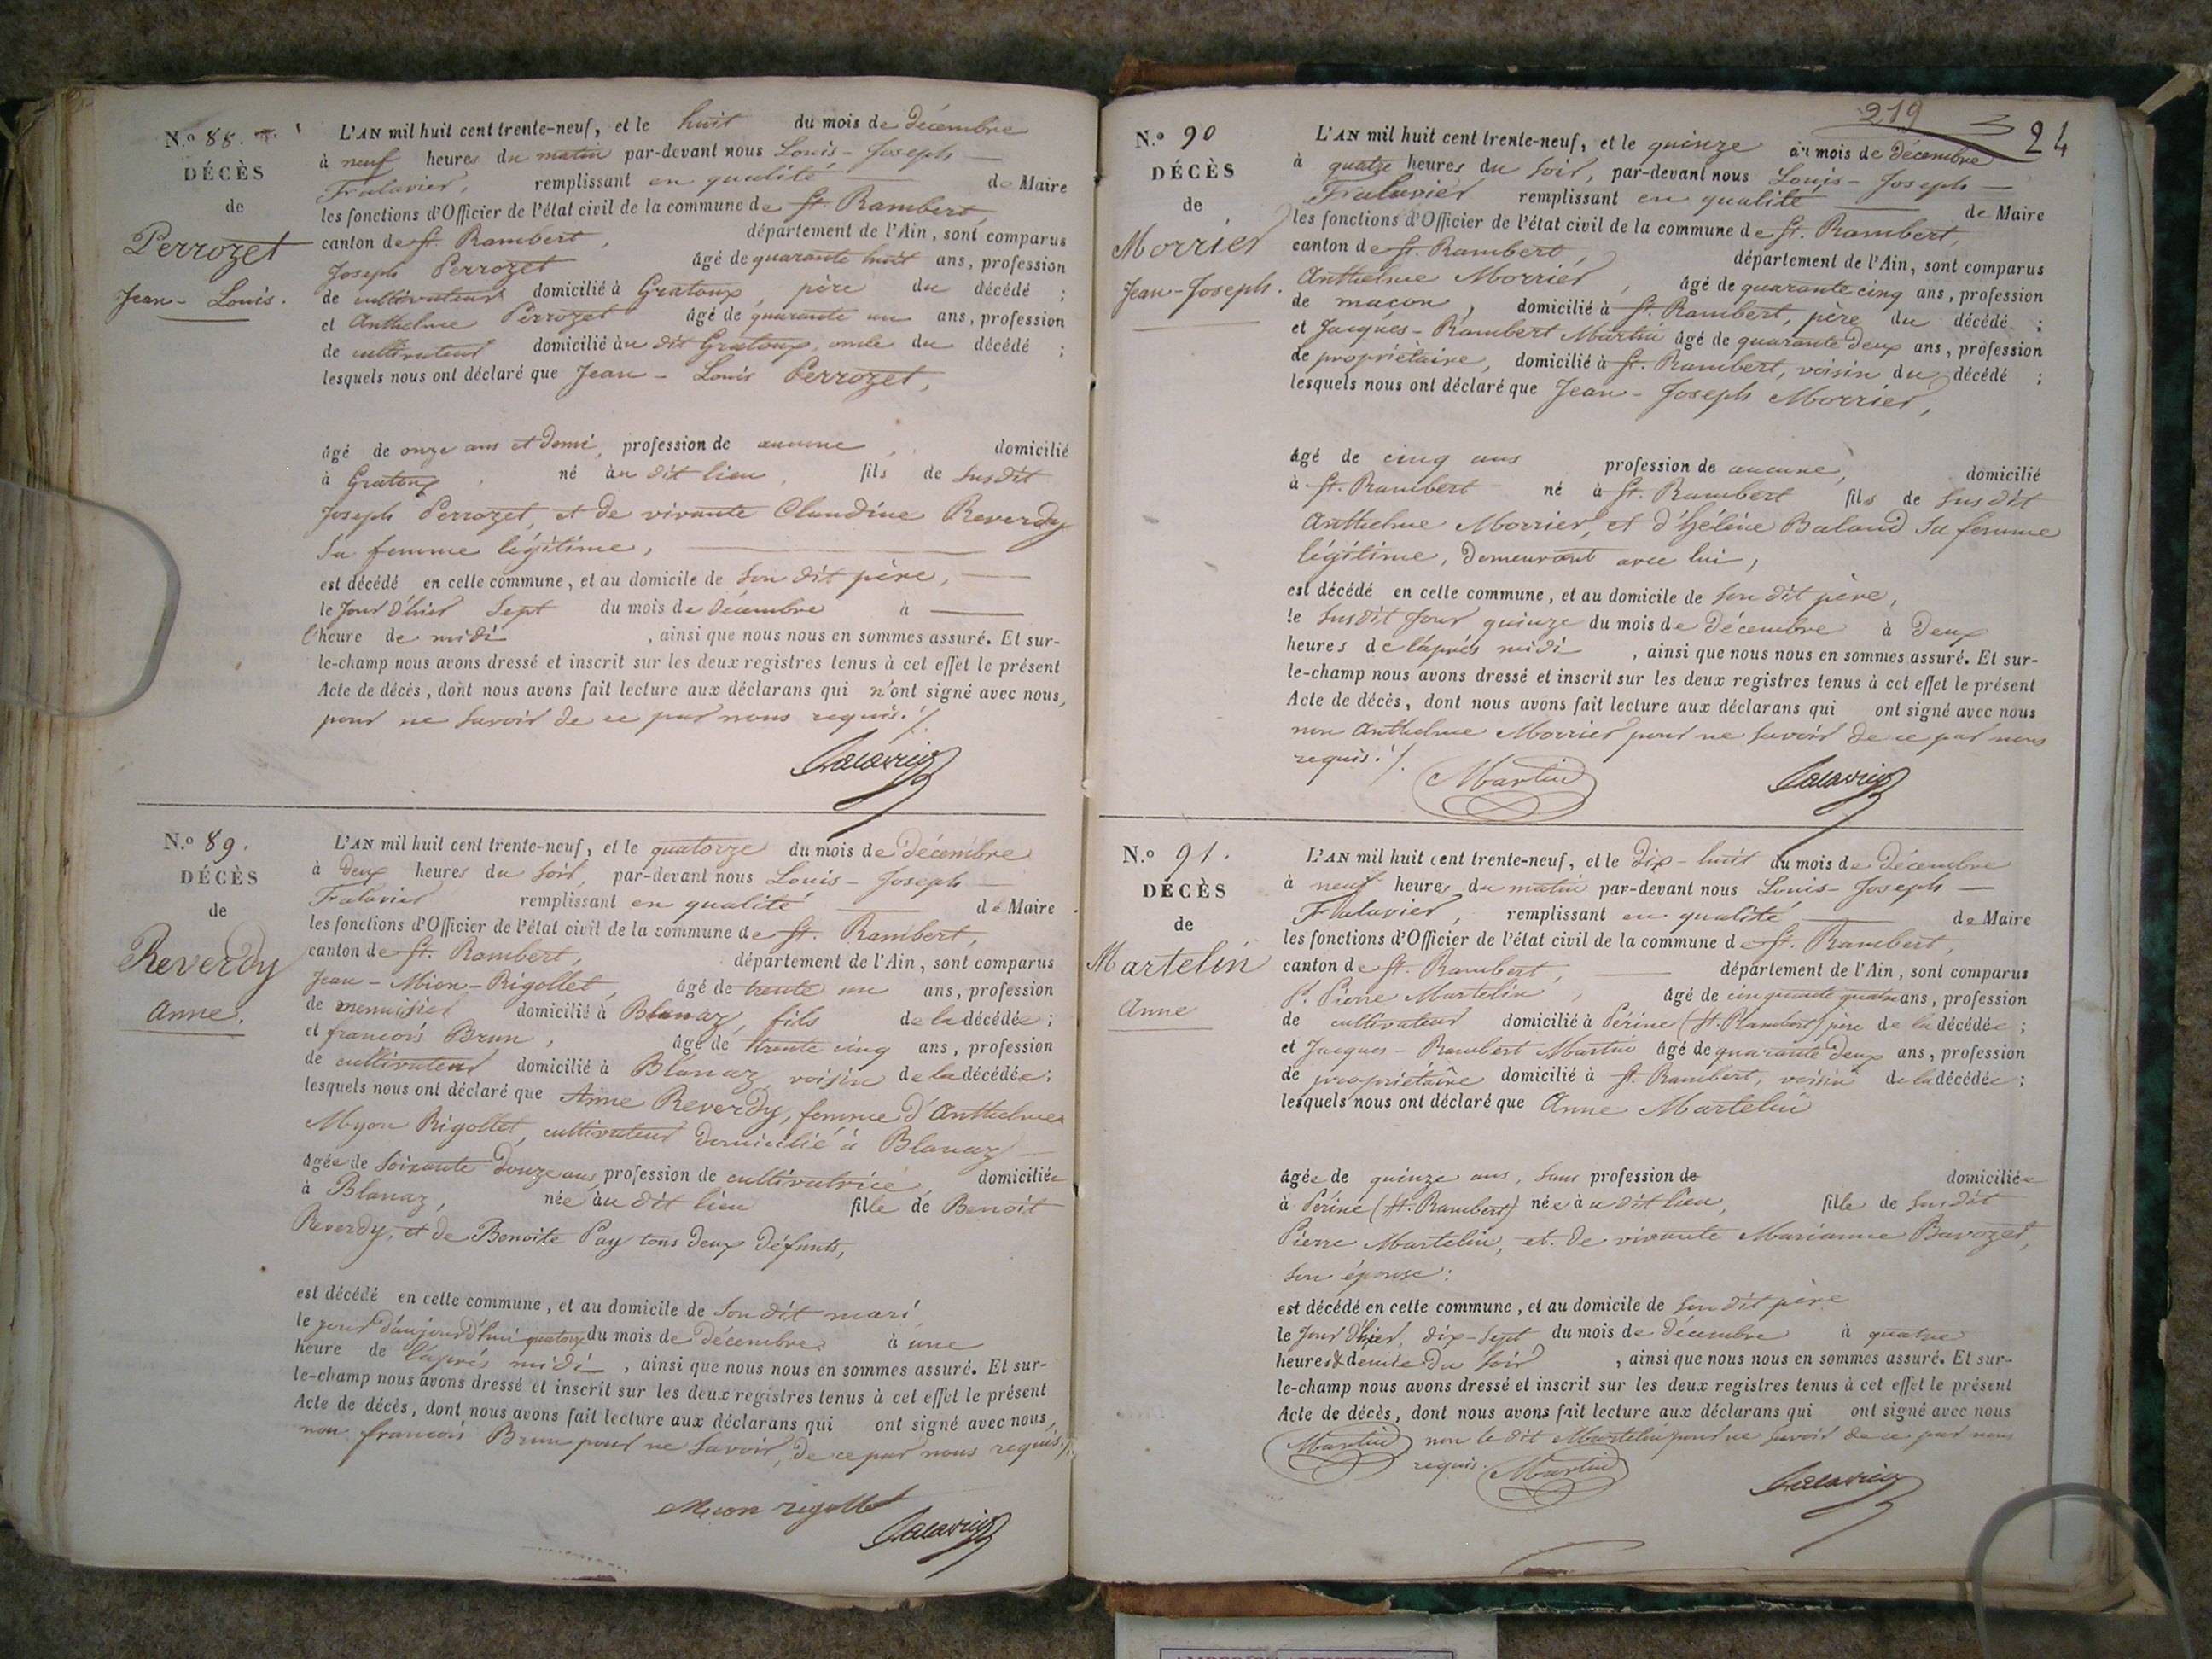 N.o 88.
DÉCÈS
de
Perrozet
Jean - Louis.
L'AN mil huit cent trente-neuf, et le huit du mois de décembre
à neuf heures du matin par-devant nous Louis - Joseph
Fralavier, remplissant en qualité de Maire
les fonctions d'Officier de l'état civil de la commune de St. Rambert,
canton de St. Rambert, département de l'Ain, sont comparus
Joseph Perrozet âgé de quarante huit ans, profession
de cultivateur domicilié à Gratoux, père du décédé ;
et Anthelme Perrozet âgé de quarante un ans, profession
de cultivateur domicilié au dit Gratoux, oncle du décédé ;
lesquels nous ont déclaré que Jean - Louis Perrozet,
âgé de onze ans et demi, profession de aucune, domicilié
à Gratoux, né au dit lieu, fils de susdit
Joseph Perrozet, et de vivante Claudine Reverdy
sa femme légitime,
est décédé en cette commune, et au domicile de son dit père,
le jour d'hier sept du mois de décembre à
l'heure de midi, ainsi que nous nous en sommes assuré. Et sur-
le-champ nous avons dressé et inscrit sur les deux registres tenus à cet effet le présent
Acte de décès, dont nous avons fait lecture aux déclarans qui n'ont signé avec nous,
pour ne savoir de ce par nous requis ./.
N.o 89.
DÉCÈS
de
Reverdy
Anne.
L'AN mil huit cent trente-neuf, et le quatorze du mois de décembre
à deux heures du soir, par-devant nous Louis - Joseph
Fralavier remplissant en qualité de Maire
les fonctions d'Officier de l'état civil de la commune de St. Rambert,
canton de St. Rambert, département de l'Ain, sont comparus
Jean - Mion - Rigollet, âgé de trente un ans, profession
de menuisier domicilié à Blanaz, fils de la décédée ;
et françois Brun, âgé de trente cinq ans, profession
de cultivateur domicilié à Blanaz, voisin de la décédée ;
lesquels nous ont déclaré que Anne Reverdy, femme d'Anthelme
Myon Rigollet, cultivateur domicilié à Blanaz
âgée de soixante douze ans, profession de cultivatrice, domiciliée
à Blanaz, née au dit lieu fille de Benoit
Reverdy, et de Benoite Pay tous deux défunts,
est décédé en cette commune, et au domicile de son dit mari,
le jour d'aujourd'hui quatorze du mois de décembre à une
heure de l'après midi, ainsi que nous nous en sommes assuré. Et sur-
le-champ nous avons dressé et inscrit sur les deux registres tenus à cet effet le présent
Acte de décès, dont nous avons fait lecture aux déclarans qui ont signé avec nous,
non françois Brun pour ne savoir, de ce par nous requis ./.
Mion rigollet
219
24
N.o 90
DÉCÈS
de
Morrier
Jean-Joseph.
L'AN mil huit cent trente-neuf, et le quinze du mois de décembre
à quatre heures du soir, par-devant nous Louis - Joseph
Fralavier remplissant en qualité de Maire
les fonctions d'Officier de l'état civil de la commune de St. Rambert,
canton de St. Rambert, département de l'Ain, sont comparus
Anthelme Morrier, âgé de quarante cinq ans, profession
de maçon, domicilié à St. Rambert, père du décédé ;
et Jacques - Rambert Martin âgé de quarante deux ans, profession
de propriétaire, domicilié à St. Rambert, voisin du décédé ;
lesquels nous ont déclaré que Jean - Joseph Morrier,
âgé de cinq ans profession de aucune, domicilié
à St. Rambert né à St. Rambert fils de susdit
Anthelme Morrier, et d'hélène Baland sa femme
légitime, demeurant avec lui,
est décédé en cette commune, et au domicile de son dit père,
le susdit jour quinze du mois de décembre à deux
heures de l'après midi, ainsi que nous nous en sommes assuré. Et sur-
le-champ nous avons dressé et inscrit sur les deux registres tenus à cet effet le présent
Acte de décès, dont nous avons fait lecture aux déclarans qui ont signé avec nous
non Anthelme Morrier pour ne savoir de ce par nous
requis ./.
Martin
N.o 91.
DÉCÈS
de
Martelin
Anne
L'AN mil huit cent trente-neuf, et le dix-huit du mois de décembre
à neuf heures du matin par-devant nous Louis - Joseph
Fralavier, remplissant en qualité de Maire
les fonctions d'Officier de l'état civil de la commune de St. Rambert,
canton de St. Rambert, département de l'Ain, sont comparus
Pierre Martelin, âgé de cinquante quatre ans, profession
de cultivateur domicilié à Périne (St. Rambert) père de la décédée ;
et Jacques - Rambert Martin âgé de quarante deux ans, profession
de propriétaire domicilié à St. Rambert, voisin de la décédée ;
lesquels nous ont déclaré que Anne Martelin
âgée de quinze ans, sans profession de domiciliée
à Périne (St. Rambert) née au dit lieu, fille de susdit
Pierre Martelin, et de vivante Marianne Bavozet,
son épouse :
est décédé en cette commune, et au domicile de son dit père
le jour d'hier, dix-sept du mois de décembre à quatre
heures & demie du soir, ainsi que nous nous en sommes assuré. Et sur-
le-champ nous avons dressé et inscrit sur les deux registres tenus à cet effet le présent
Acte de décès, dont nous avons fait lecture aux déclarans qui ont signé avec nous
Martin non le dit Martelin pour ne savoir de ce par nous
requis. Martin